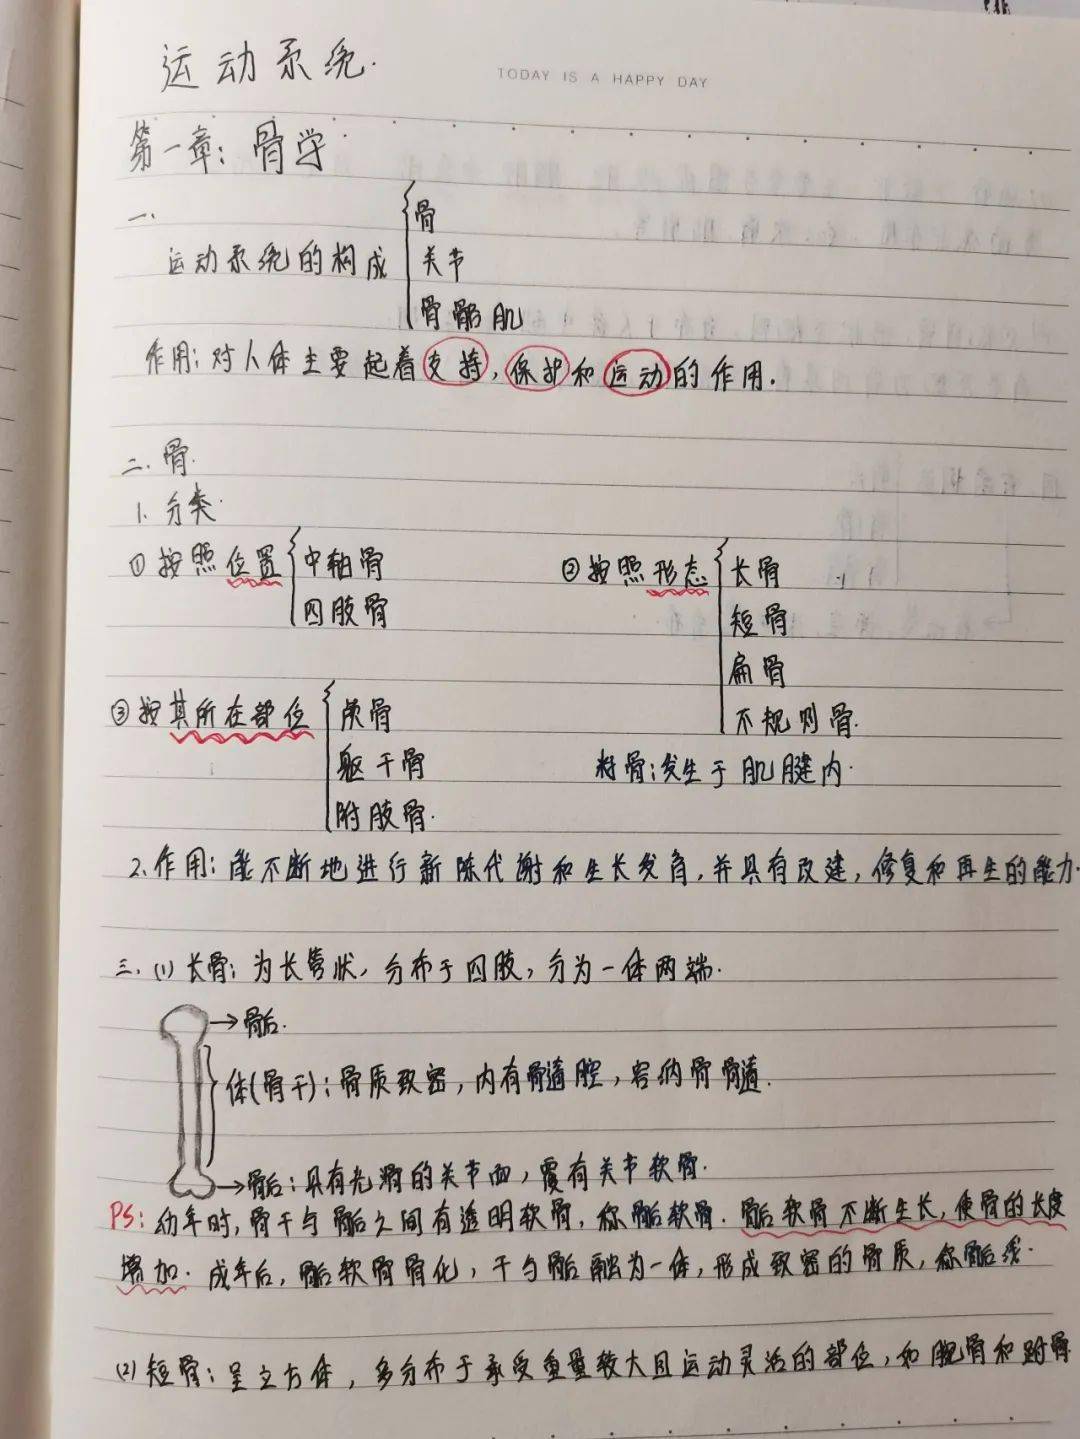 运动系统.
TODAY IS A HAPPY DAY
第一章:骨学
一.
运动系统的构成
骨
关节
骨骼肌
作用:对人体主要起着支持,保护和运动的作用.
二.骨.
1.分类.
①按照位置
中轴骨
四肢骨
②按照形态
长骨
短骨
扁骨
不规则骨.
③按其所在部位
颅骨
躯干骨
附肢骨.
籽骨:发生于肌腱内.
2.作用:能不断地进行新陈代谢和生长发育,并具有改建,修复和再生的能力.
三.(1)长骨:为长管状,分布于四肢,分为一体两端.
→骺.
体(骨干):骨质致密,内有骨髓腔,容纳骨髓.
→骺:具有光滑的关节面,覆有关节软骨.
PS:幼年时,骨干与骺之间有透明软骨,称骺软骨.骺软骨不断生长,使骨的长度
增加.成年后,骺软骨骨化,干与骺融为一体,形成致密的骨质,称骺线.
(2)短骨:呈立方体,多分布于承受重量较大且运动灵活的部位,如腕骨和跗骨